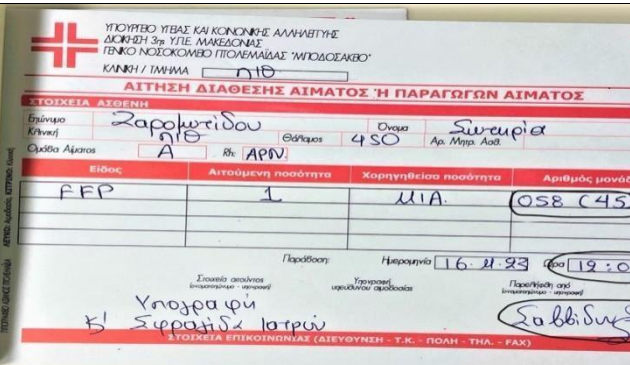 ΥΠΟΥΡΓΕΙΟ ΥΓΕΙΑΣ ΚΑΙ ΚΟΙΝΩΝΙΚΗΣ ΑΛΛΗΛΕΓΓΥΗΣ
ΔΙΟΙΚΗΣΗ 3ης Υ.ΠΕ. ΜΑΚΕΔΟΝΙΑΣ
ΓΕΝΙΚΟ ΝΟΣΟΚΟΜΕΙΟ ΠΤΟΛΕΜΑΪΔΑΣ "ΜΠΟΔΟΣΑΚΕΙΟ"
ΚΛΙΝΙΚΗ / ΤΜΗΜΑ ΠΙΘ
ΑΙΤΗΣΗ ΔΙΑΘΕΣΗΣ ΑΙΜΑΤΟΣ Ή ΠΑΡΑΓΩΓΩΝ ΑΙΜΑΤΟΣ
ΣΤΟΙΧΕΙΑ ΑΣΘΕΝΗ
Επώνυμο Όνομα
Κλινική ΠΙΘ Θάλαμος 450 Αρ. Μητρ. Ασθ.
Ομάδα Αίματος Α Rh: ΑΡΝ.
Είδος Αιτούμενη ποσότητα Χορηγηθείσα ποσότητα Αριθμός μονάδ
FFP 1 ΜΙΑ. 058 C45
Παράδοση: Ημερομηνία Ώρα 12:0
Στοιχεία αιτούντος Υπογραφή Παρελήφθη από
(ονοματεπώνυμο - υπογραφή) υπεύθυνου αιμοδοσίας (ονοματεπώνυμο - υπογραφή)
Υπογραφή
κ' Σφραγίδα Ιατρών
ΣΤΟΙΧΕΙΑ ΕΠΙΚΟΙΝΩΝΙΑΣ (ΔΙΕΥΘΥΝΣΗ - Τ.Κ. - ΠΟΛΗ - ΤΗΛ. - FAX)